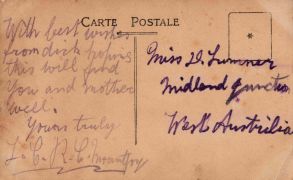 CARTE POSTALE
With best wishes
from dick hoping
this will find
You and mother
well.
Yours truly
Miss D. Sumner
Midland Junction
West Australia